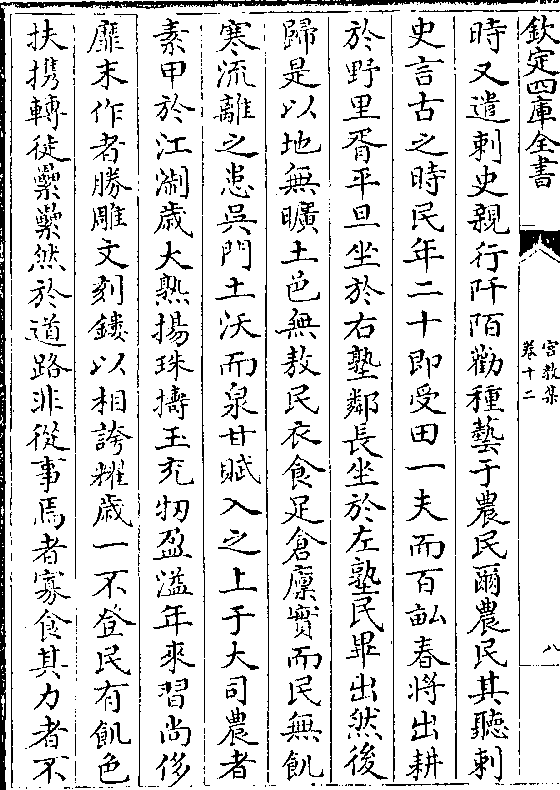 欽定四庫全書
宫教集
卷十二
八
時又遣刺史親行阡陌勸種藝于農民爾農民其聽刺
史言古之時民年二十即受田一夫而百畝春將出耕
於野里胥平旦坐於右塾鄰長坐於左塾民畢出然後
歸是以地無曠土邑無敖民衣食足倉廪實而民無飢
寒流離之患吳門土沃而泉甘賦入之上于大司農者
素甲於江淛歳大熟揚珠擣玉充牣盈溢年來習尚侈
靡末作者勝雕文刻鏤以相誇耀歳一不登民有飢色
扶携轉徙纍纍然於道路非從事焉者寡食其力者不